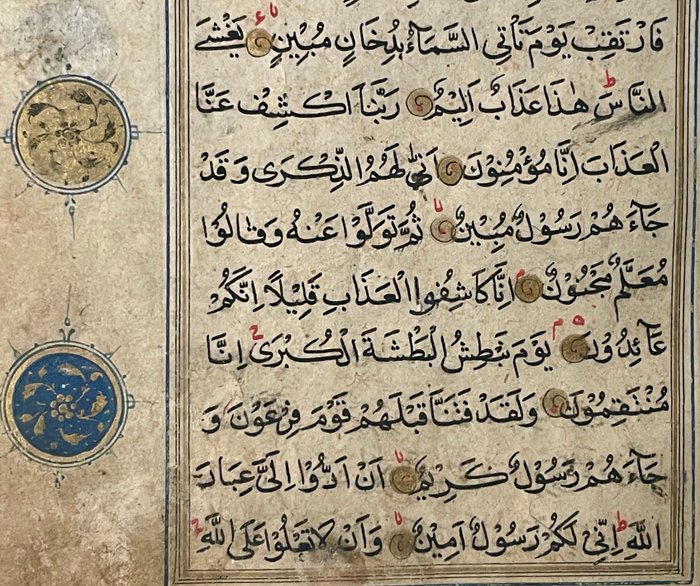 فَارْتَقِبْ يَوْمَ تَأْتِي السَّمَآءُ بِدُخَانٍ مُبِينٍ يَغْشَى
النَّاسَ هٰذَا عَذَابٌ اَلِيمٌ رَبَّنَا اكْشِفْ عَنَّا
الْعَذَابَ اِنَّا مُؤْمِنُونَ اَنّٰى لَهُمُ الذِّكْرَى وَقَدْ
جَآءَهُمْ رَسُولٌ مُبِينٌ ثُمَّ تَوَلَّوْا عَنْهُ وَقَالُوا
مُعَلَّمٌ مَجْنُونٌ اِنَّا كَاشِفُوا الْعَذَابِ قَلِيلًا اِنَّكُمْ
عَآئِدُونَ يَوْمَ نَبْطِشُ الْبَطْشَةَ الْكُبْرَى اِنَّا
مُنْتَقِمُونَ وَلَقَدْ فَتَنَّا قَبْلَهُمْ قَوْمَ فِرْعَوْنَ وَ
جَآءَهُمْ رَسُولٌ كَرِيمٌ اَنْ اَدُّوا اِلَىَّ عِبَادَ
اللّٰهِ اِنِّي لَكُمْ رَسُولٌ اَمِينٌ وَاَنْ لَا تَعْلُوا عَلَى اللّٰهِ